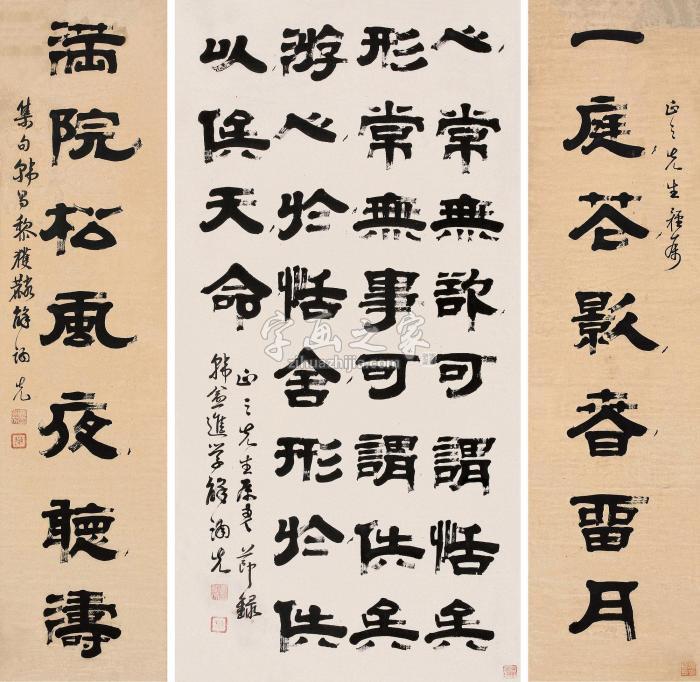 正之先生雅屬
一庭花影春留月
心常無欲可謂恬矣
形常無事可謂佚矣
游心於恬舍形於佚
以俟天命
正之先生屬書節錄
韓愈進學解
滿院松風夜聽濤
集句韓昌黎獲麟解
字画之家
zihuazhijia.com